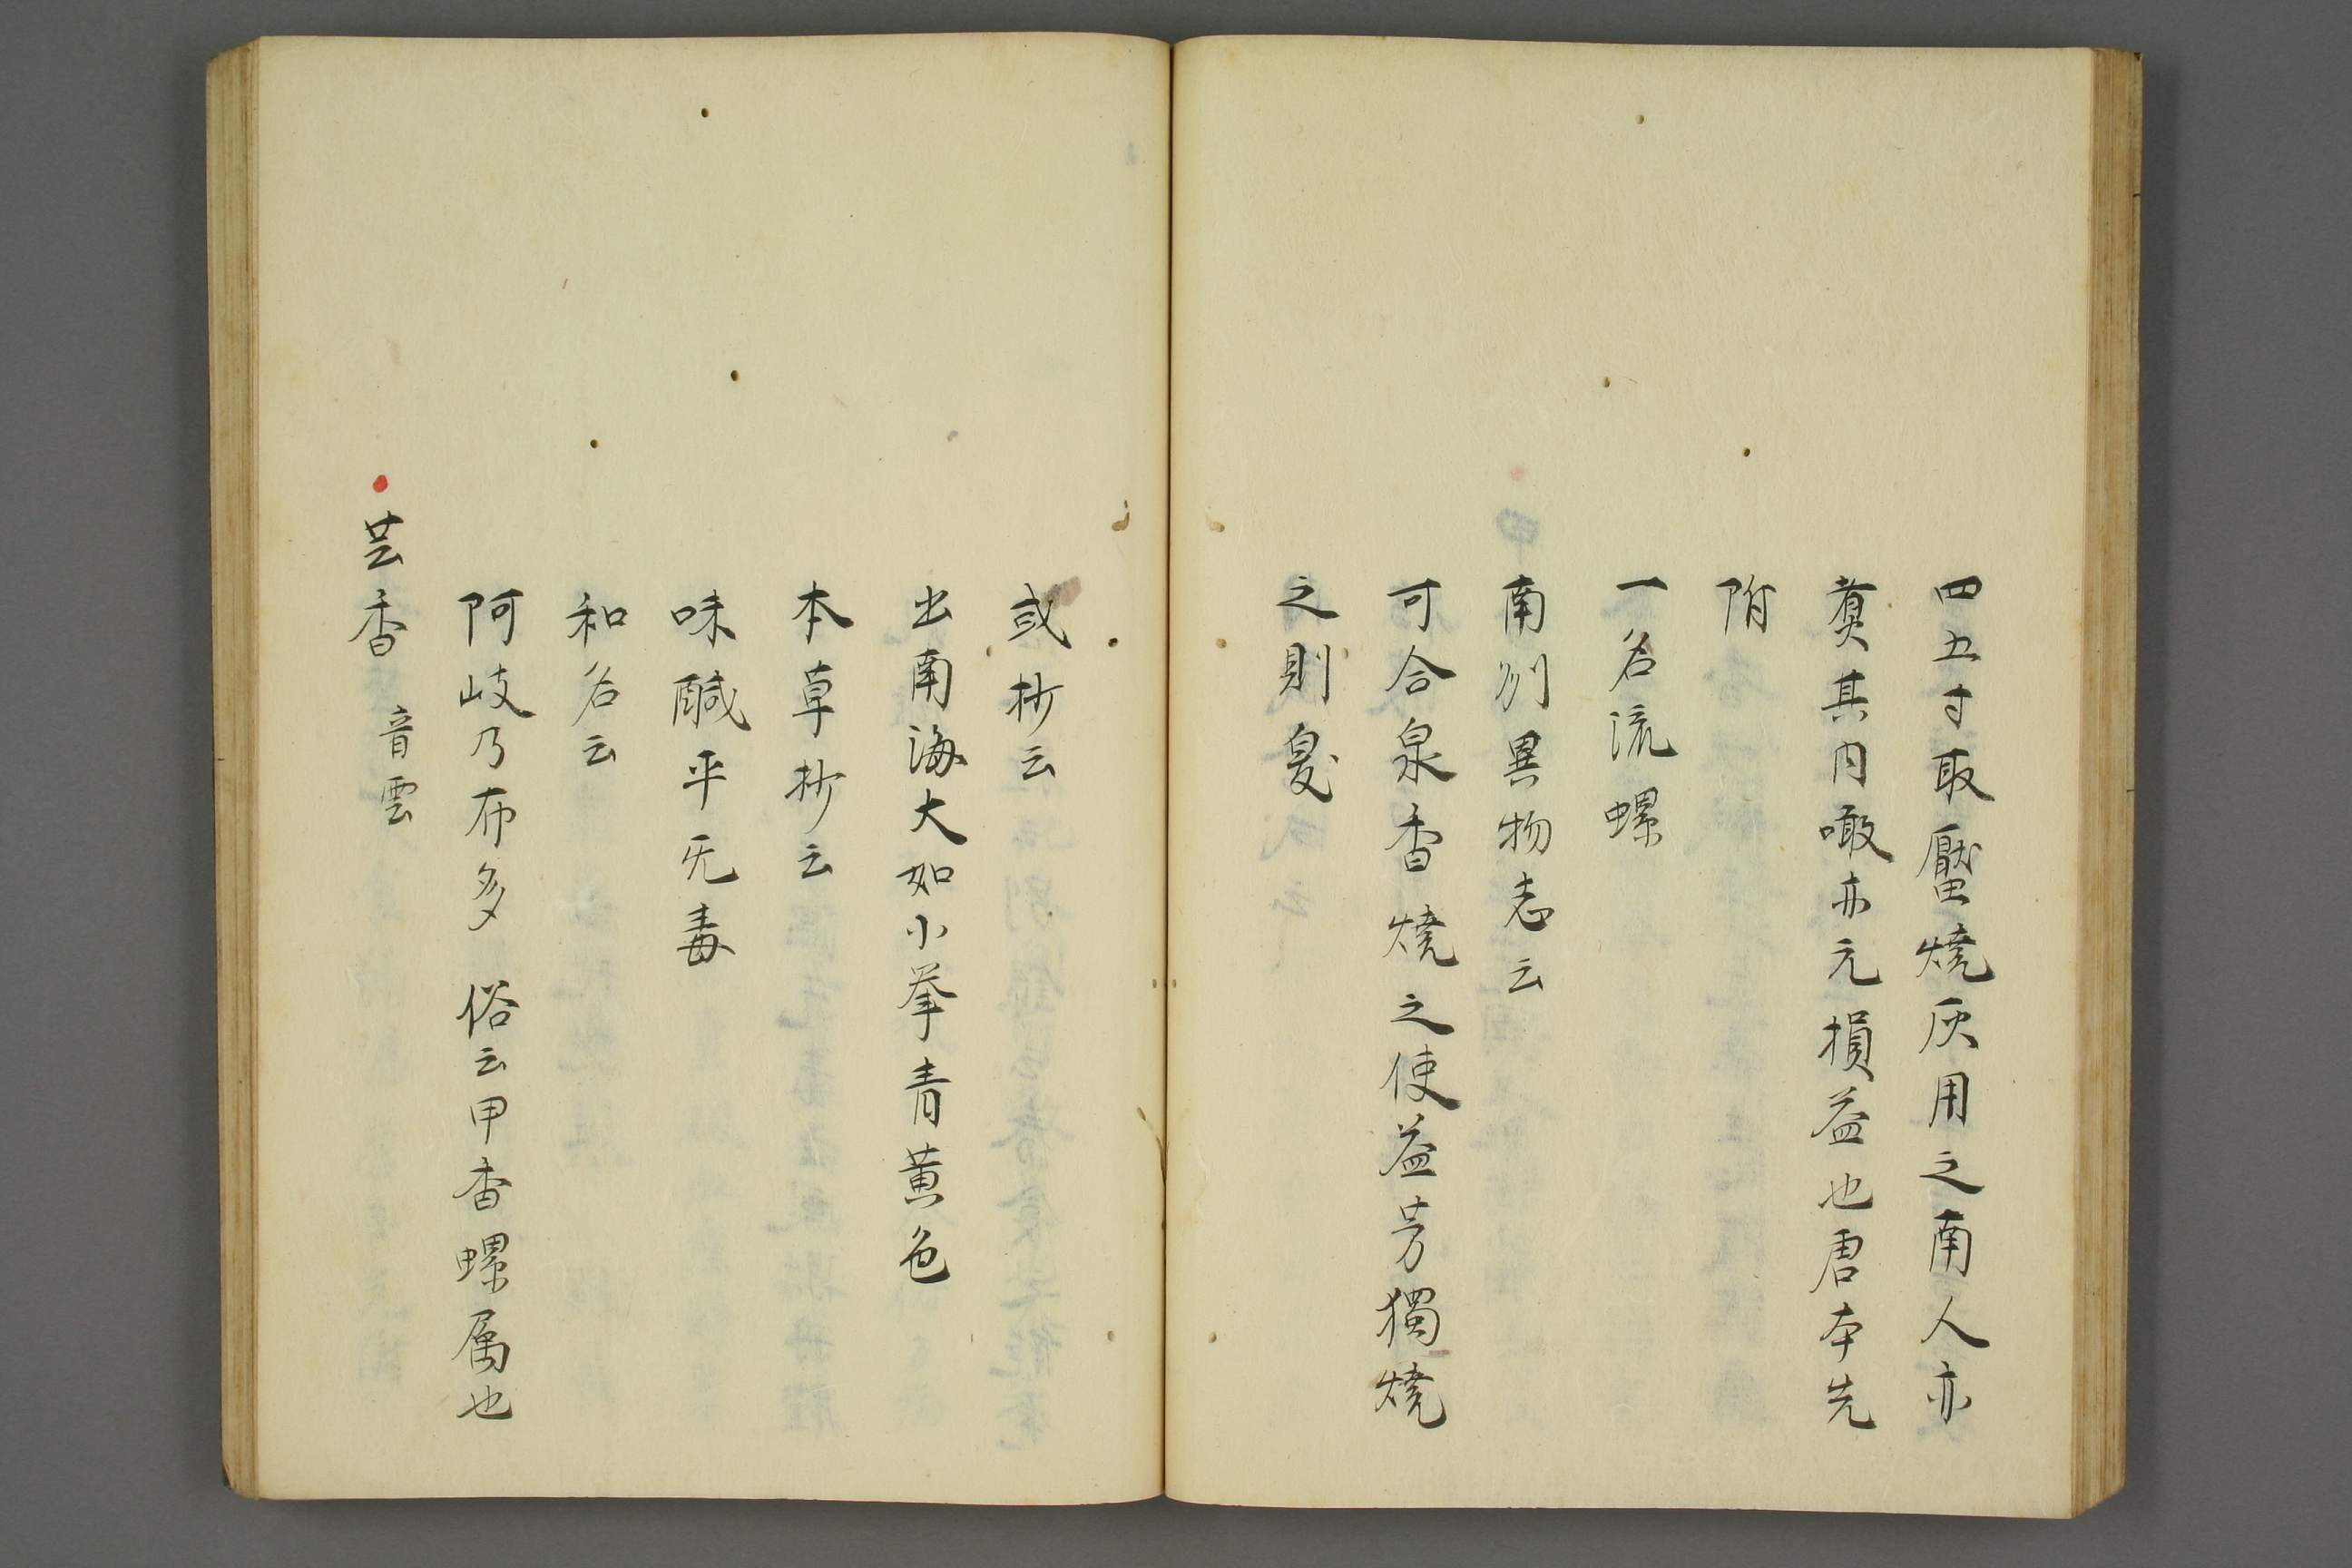 四五寸取靨燒灰用之南人亦
煑其肉噉亦元損益也唐本先
附
一名流螺
南列異物志云
可合泉香燒之使益芳獨燒
之則臭
或抄云
出南海大如小拳青黄色
本草抄云
味鹹平无毒
和名云
阿岐乃布多 俗云甲香螺属也
芸香 音雲